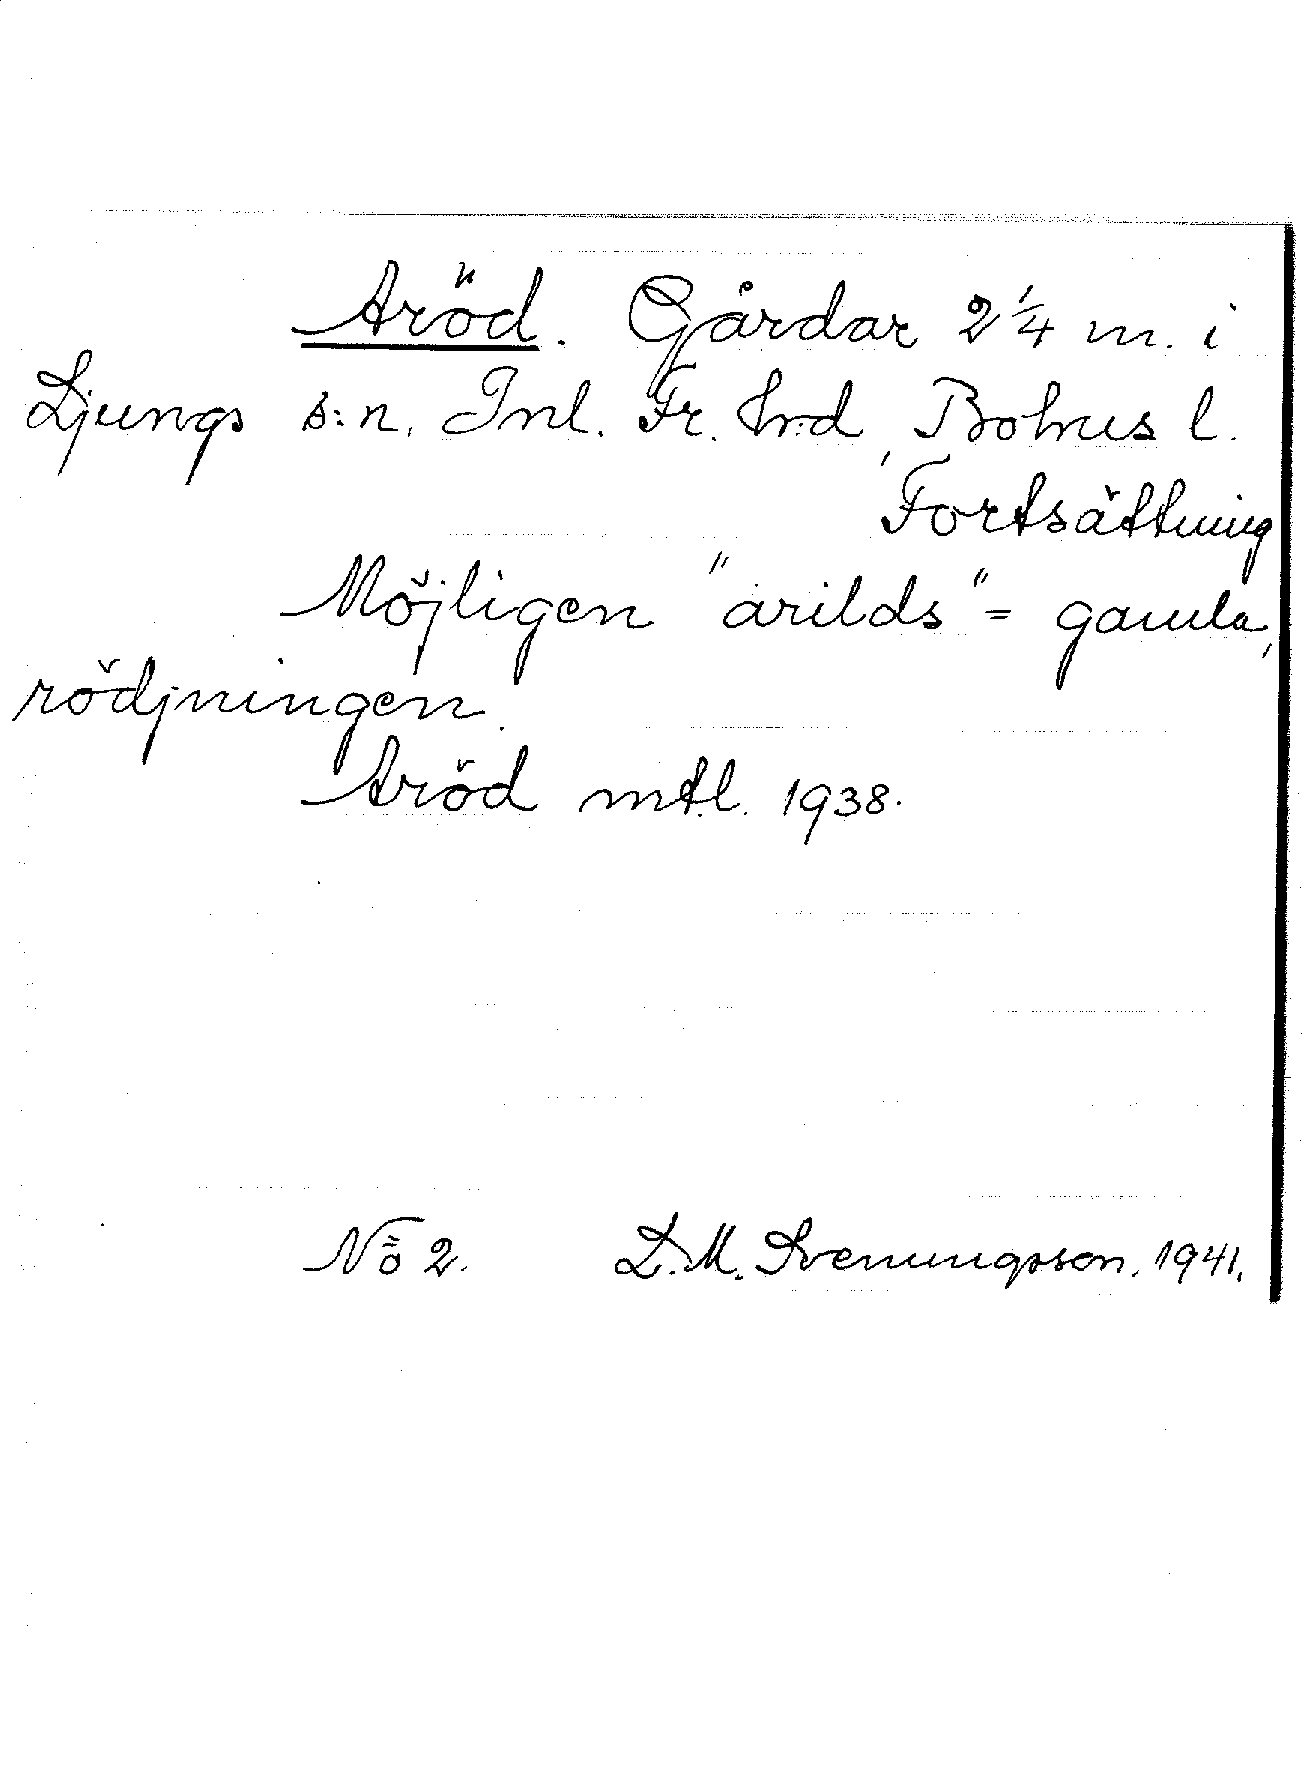 Aröd. Gårdar 2 1/4 m. i
Ljungs s:n, Inl. Fr. hrd, Bohus l.
Fortsättning
Möjligen "arilds" = gamla,
rödjningen.
Aröd mtl. 1938.
No 2. L. M. Svenungsson. 1941.